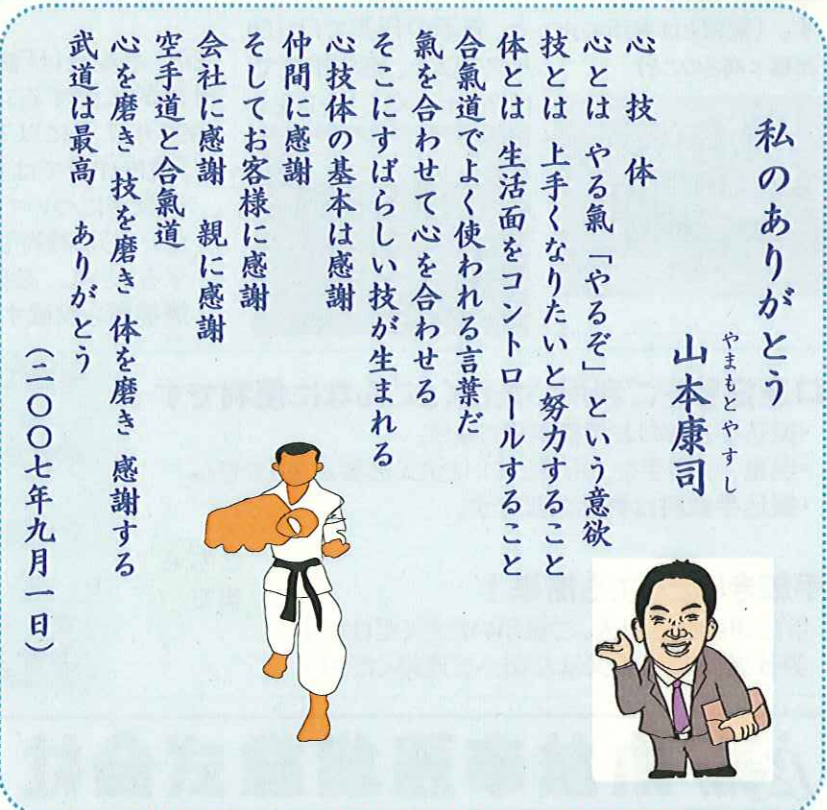 私のありがとう
やまもとやすし
山本康司
心 技 体
心とは やる氣「やるぞ」という意欲
技とは 上手くなりたいと努力すること
体とは 生活面をコントロールすること
合氣道でよく使われる言葉だ
氣を合わせて心を合わせる
そこにすばらしい技が生まれる
心技体の基本は感謝
仲間に感謝
そしてお客様に感謝
会社に感謝 親に感謝
空手道と合氣道
心を磨き 技を磨き 体を磨き 感謝する
武道は最高 ありがとう
(二〇〇七年九月一日)